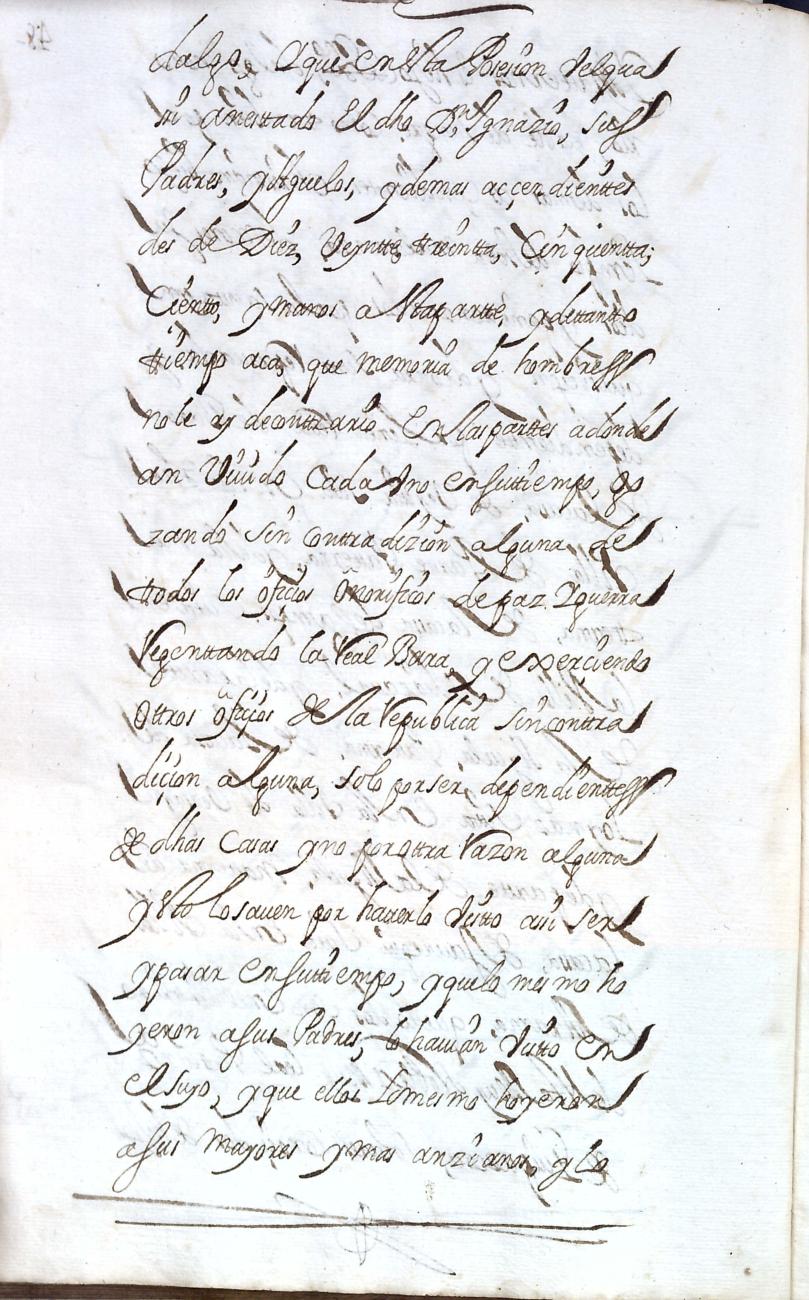 dalgo, Aque en Vta Posesion del qua
si an esttado El dho Dn. Ygnazio, sus
Padres, y Aguelos, y demas aççendienttes
des de Diez, Veyntte, ttreintta, Çinquentta,
Çientto, y mas os a Vta partte, y de ttantto
ttiempo aca, que memoria de hombress
no le ay de conttrario En las parttes adonde
an Viuido Cada Vno en su ttiempo, go
zando sin Conttradizion alguna de
ttodos los ofiçios Onorificos de paz Y guerra
Regenttando la Real Bara, y exerçiendo
Ottros ofiçios de la Republica sin conttra
diçion alguna, solo por ser dependienttess
de dhas Casas y no por ottra Razon alguna
y Vto lo sauen por hauerlo Vistto assi ser
y pasar en su ttiempo, y que lo mesmo ho
yeron a sus Padres, lo hauian Vistto en
el suyo, y que ellos lo mesmo hoyeron
a sus Mayores y mas anzianos, y lo